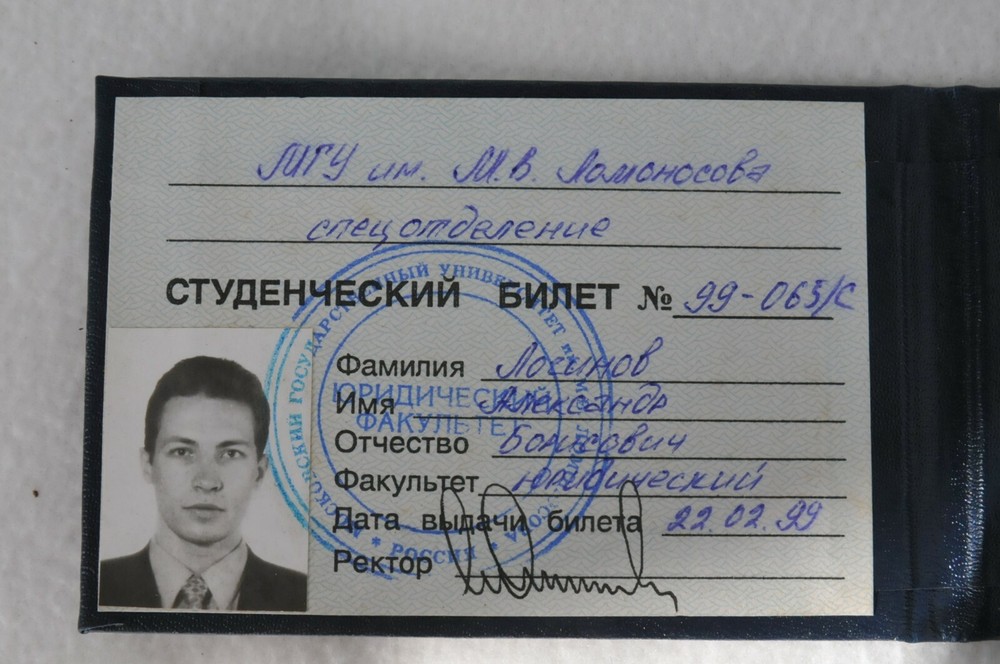 МГУ им. М.В. Ломоносова
спецотделение
СТУДЕНЧЕСКИЙ БИЛЕТ № 99-063/С
Фамилия Логинов
Имя Александр
Отчество Борисович
Факультет юридический
Дата выдачи билета 22.02.99
Ректор
МОСКОВСКИЙ ГОСУДАРСТВЕННЫЙ УНИВЕРСИТЕТ им. М.В. ЛОМОНОСОВА * РОССИЯ *
ЮРИДИЧЕСКИЙ
ФАКУЛЬТЕТ